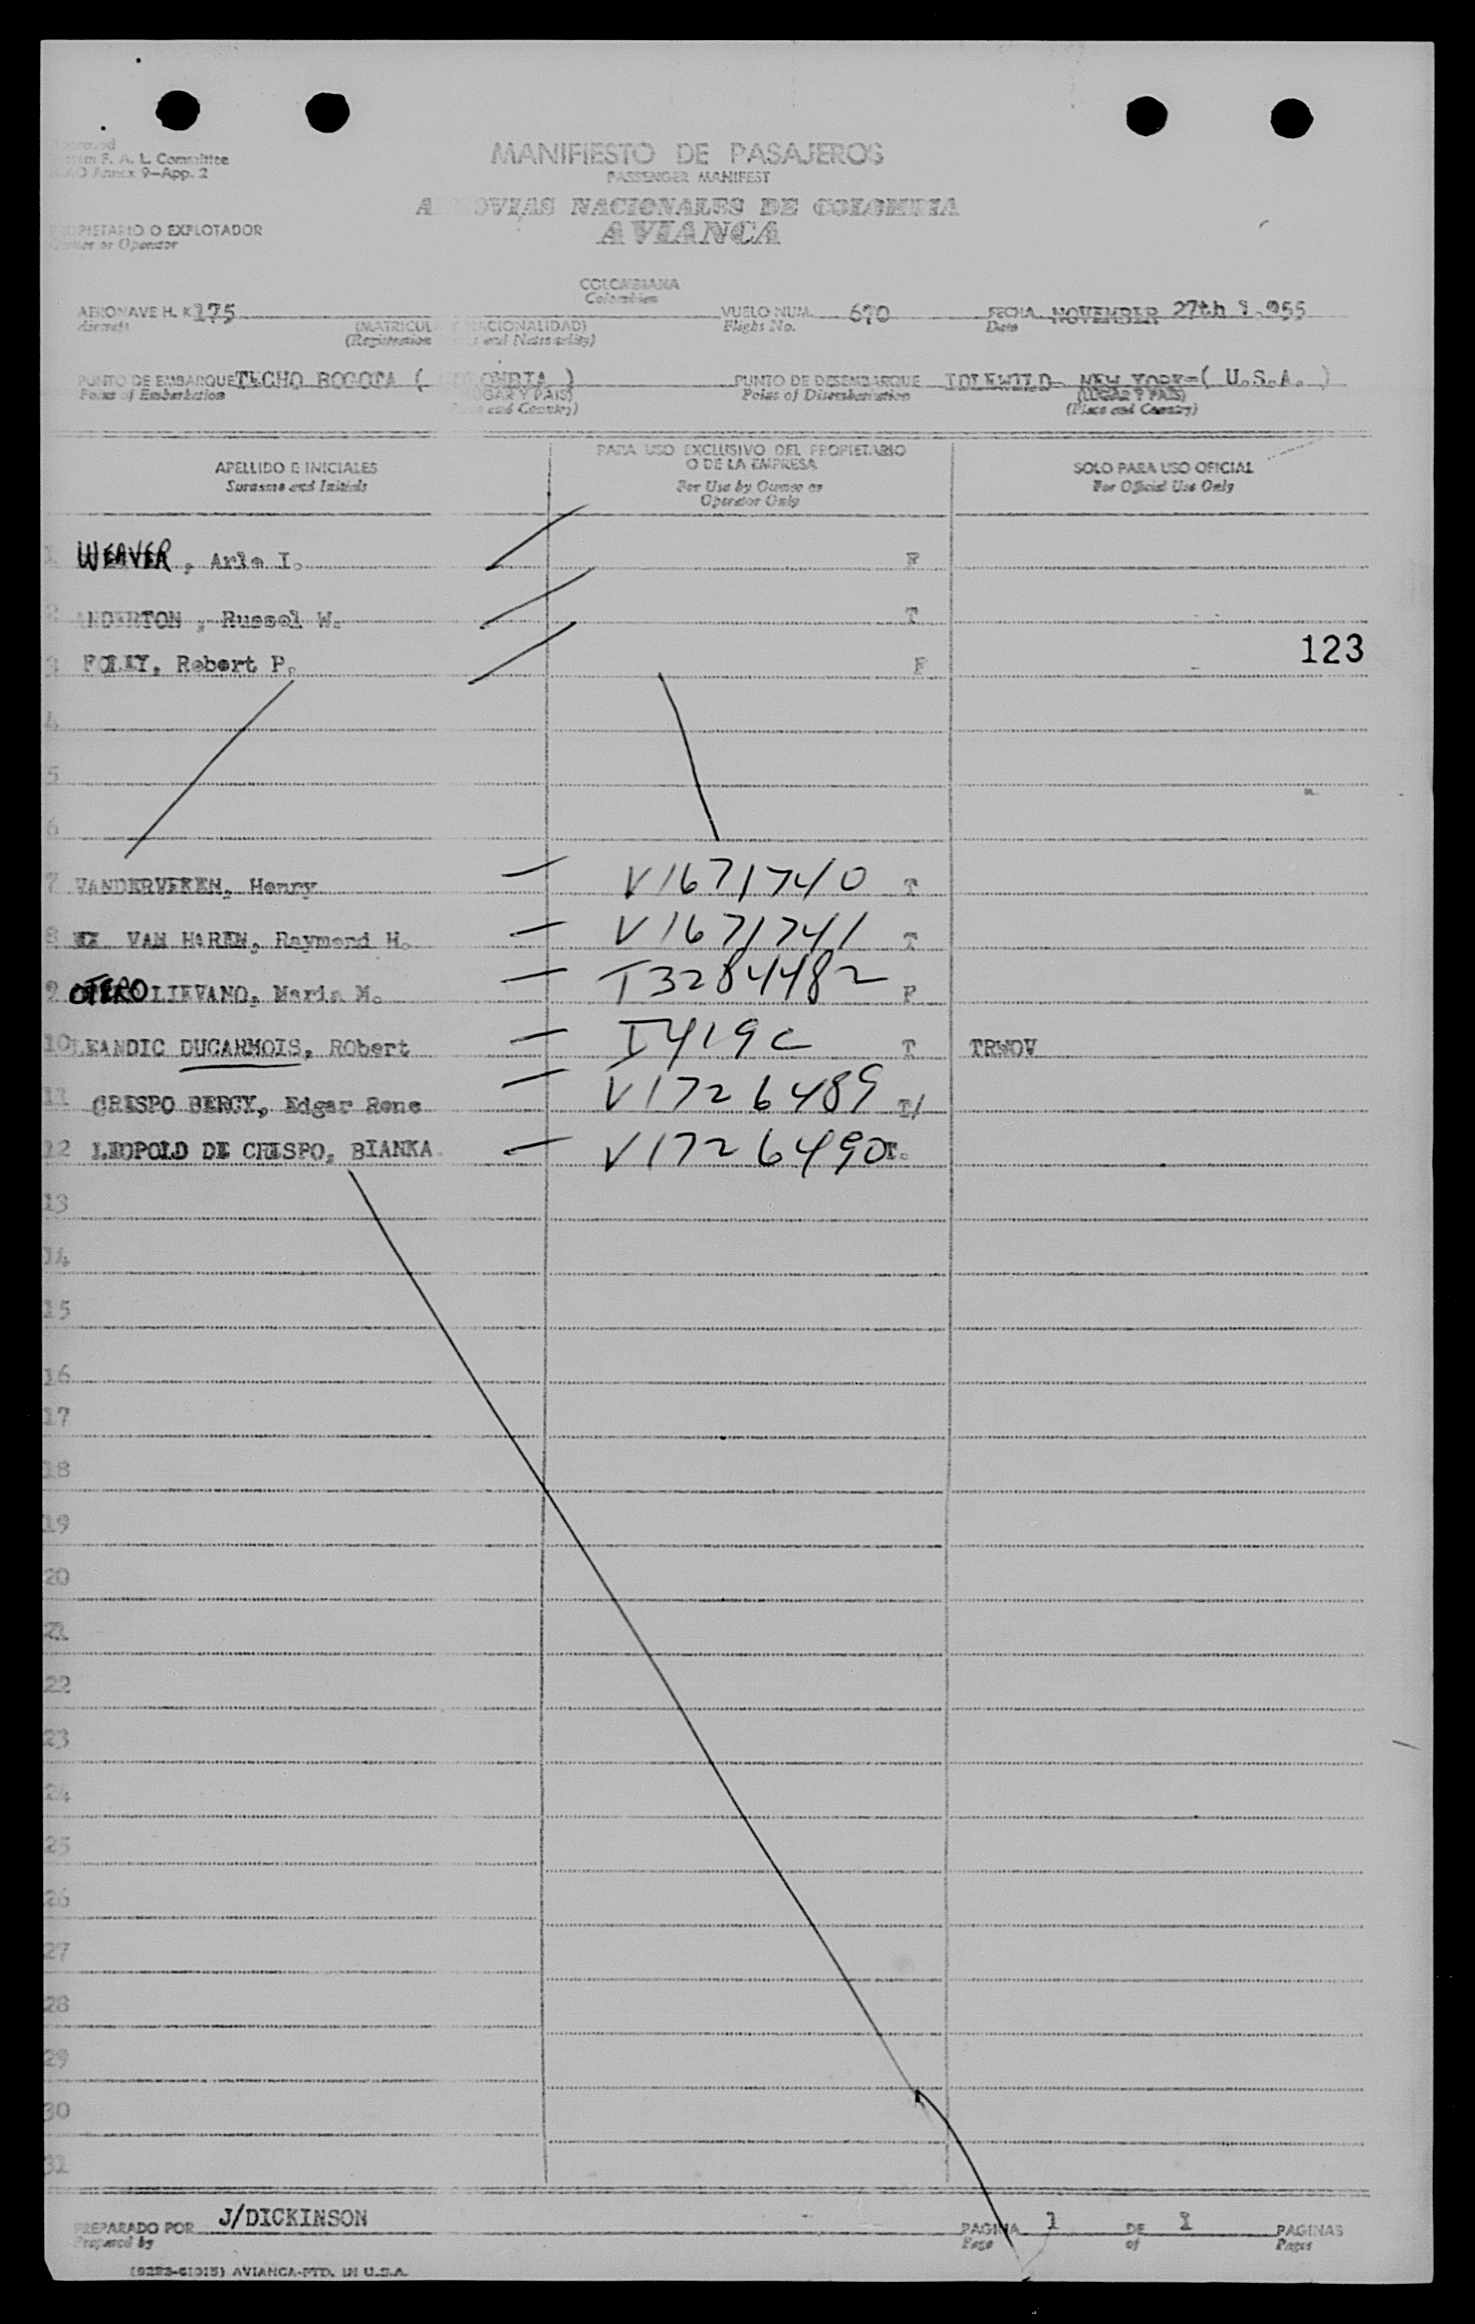 F. A. L. Committee
Annex 9—App. 2
MANIFIESTO DE PASAJEROS
PASSENGER MANIFEST
NACIONALES DE COLOMBIA
AVIANCA
O EXPLOTADOR
or Operator
COLOMBIANA
Colombian
AERONAVE H. K 175 VUELO NUM. 670 FECHA NOVEMBER 27th 1.955
Aircraft Flight No. Date
(Registration and Nationality)
PUNTO DE EMBARQUE TECHO BOGOTA ( ) PUNTO DE DESEMBARQUE IDLEWILD- NEW YORK=( U.S.A. )
Point of Embarkation Point of Disembarkation (LUGAR Y PAIS)
and Country) (Place and Country)
APELLIDO E INICIALES PARA USO EXCLUSIVO DEL PROPIETARIO O DE LA EMPRESA SOLO PARA USO OFICIAL
Surname and Initials For Use by Owner or Operator Only For Official Use Only
1 WEAVER, Arle I. F
2 ANDERTON, Russel W. T
3 FOLEY, Robert P. F 123
4
5
6
7 VANDERVEKEN, Henry V1671740 T
8 VAN HAREN, Raymond H. V1671741 T
9 OTERO LIEVANO, Maria M. T3284482 F
10 LEANDIC DUCARMOIS, RObert I419C T TRWOV
11 CRESPO BERGY, Edgar Rene V1726489 T/
12 LEOPOLD DE CRESPO, BIANKA V1726490 T.
13
14
15
16
17
18
19
20
21
22
23
24
25
26
27
28
29
30
31
PREPARADO POR J/DICKINSON PAGINA 1 DE 1 PAGINAS
Prepared by Page of Pages
AVIANCA-PTD. IN U.S.A.